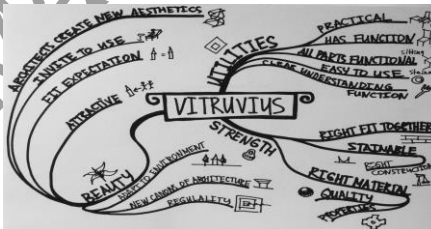 ARCHITECTS CREATE NEW AESTHETICS
INVITE TO USE
FIT EXPECTATION
ATTRACTIVE
BEAUTY
ADAPT TO ENVIRONMENT
NEW CANVAS OF ARCHITECTURE
REGULARITY
VITRUVIUS
UTILITIES
PRACTICAL
HAS FUNCTION
ALL PARTS FUNCTIONAL
sitting
EASY TO USE
CLEAR UNDERSTANDING
FUNCTION
STRENGTH
RIGHT FIT TOGETHER
STAINABLE
RIGHT
CONSTRUCTION
RIGHT MATERIAL
QUALITY
PROPERTIES